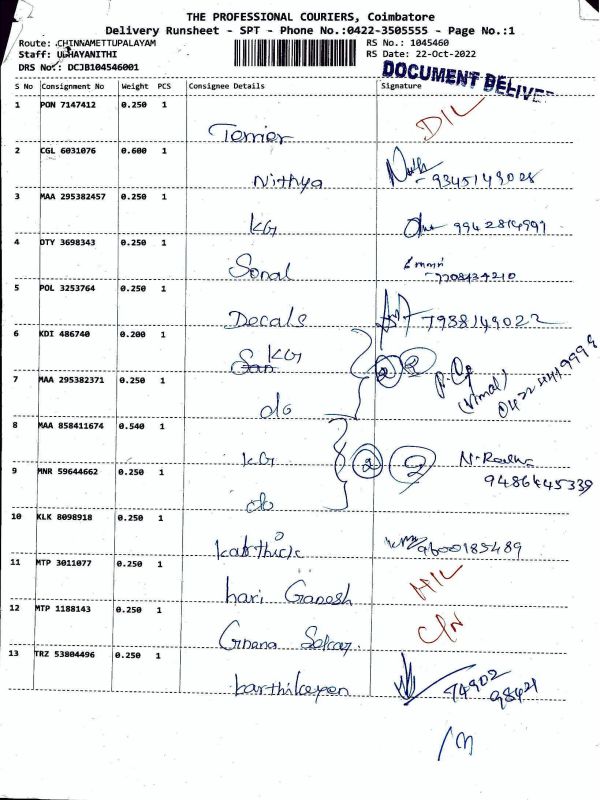 THE PROFESSIONAL COURIERS, Coimbatore
Delivery Runsheet - SPT - Phone No.:0422-3505555 - Page No.:1
Route: CHINNAMETTUPALAYAM RS No.: 1045460
Staff: UDHAYANITHI RS Date: 22-Oct-2022
DRS No.: DCJB104546001
DOCUMENT DELIVE
S No Consignment No Weight PCS Consignee Details Signature
1 PON 7147412 0.250 1
Terrier D/L
2 CGL 6031076 0.600 1
Nithya 9345149028
3 MAA 295382457 0.250 1
KG 9942814997
4 OTY 3698343 0.250 1
Sonal 7708434210
5 POL 3253764 0.250 1
Decals 7988149022
6 KDI 486740 0.200 1
KG 2
7 MAA 295382371 0.250 1
do (Vimal) 0422 4419999
8 MAA 858411674 0.540 1
KG 2 2 N. Radha
9 MNR 59644662 0.250 1
do 9486445339
10 KLK 8098918 0.250 1
karthick 9600185489
11 MTP 3011077 0.250 1
hari Ganesh H/L
12 MTP 1188143 0.250 1
Gnana Sekar C/N
13 TRZ 53804496 0.250 1
karthikeyen 74902
98421